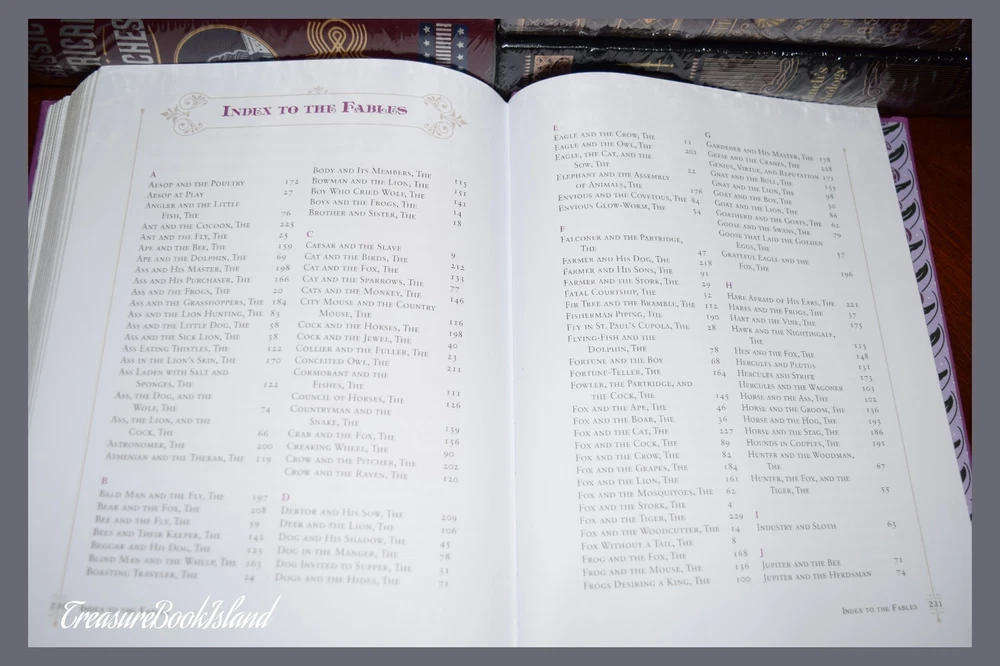 INDEX TO THE FABLES
A
AESOP AND THE POULTRY 172
AESOP AT PLAY 27
ANGLER AND THE LITTLE
FISH, THE 76
ANT AND THE COCOON, THE 225
ANT AND THE FLY, THE 25
APE AND THE BEE, THE 159
APE AND THE DOLPHIN, THE 69
ASS AND HIS MASTER, THE 198
ASS AND HIS PURCHASER, THE 166
ASS AND THE FROGS, THE 20
ASS AND THE GRASSHOPPERS, THE 184
ASS AND THE LION HUNTING, THE 83
ASS AND THE LITTLE DOG, THE 58
ASS AND THE SICK LION, THE 58
ASS EATING THISTLES, THE 122
ASS IN THE LION'S SKIN, THE 170
ASS LADEN WITH SALT AND
SPONGES, THE 122
ASS, THE DOG, AND THE
WOLF, THE 74
ASS, THE LION, AND THE
COCK, THE 66
ASTRONOMER, THE 200
ATHENIAN AND THE THEBAN, THE 119
B
BALD MAN AND THE FLY, THE 197
BEAR AND THE FOX, THE 208
BEE AND THE FLY, THE 59
BEES AND THEIR KEEPER, THE 142
BEGGAR AND HIS DOG, THE 123
BLIND MAN AND THE WHELP, THE 163
BOASTING TRAVELER, THE 24
BODY AND ITS MEMBERS, THE 115
BOWMAN AND THE LION, THE 151
BOY WHO CRIED WOLF, THE 141
BOYS AND THE FROGS, THE 14
BROTHER AND SISTER, THE 18
C
CAESAR AND THE SLAVE 9
CAT AND THE BIRDS, THE 212
CAT AND THE FOX, THE 133
CAT AND THE SPARROWS, THE 77
CATS AND THE MONKEY, THE 146
CITY MOUSE AND THE COUNTRY
MOUSE, THE 116
COCK AND THE HORSES, THE 198
COCK AND THE JEWEL, THE 40
COLLIER AND THE FULLER, THE 23
CONCEITED OWL, THE 211
CORMORANT AND THE
FISHES, THE 111
COUNCIL OF HORSES, THE 126
COUNTRYMAN AND THE
SNAKE, THE 139
CRAB AND THE FOX, THE 156
CREAKING WHEEL, THE 90
CROW AND THE PITCHER, THE 202
CROW AND THE RAVEN, THE 120
D
DEBTOR AND HIS SOW, THE 209
DEER AND THE LION, THE 106
DOG AND HIS SHADOW, THE 45
DOG IN THE MANGER, THE 78
DOG INVITED TO SUPPER, THE 31
DOGS AND THE HIDES, THE 71
INDEX TO THE
E
EAGLE AND THE CROW, THE 11
EAGLE AND THE OWL, THE 201
EAGLE, THE CAT, AND THE
SOW, THE 22
ELEPHANT AND THE ASSEMBLY
OF ANIMALS, THE 176
ENVIOUS AND THE COVETOUS, THE 84
ENVIOUS GLOW-WORM, THE 34
F
FALCONER AND THE PARTRIDGE,
THE 47
FARMER AND HIS DOG, THE 218
FARMER AND HIS SONS, THE 91
FARMER AND THE STORK, THE 29
FATAL COURTSHIP, THE 32
FIR TREE AND THE BRAMBLE, THE 112
FISHERMAN PIPING, THE 190
FLY IN ST. PAUL'S CUPOLA, THE 28
FLYING-FISH AND THE
DOLPHIN, THE 78
FORTUNE AND THE BOY 68
FORTUNE-TELLER, THE 164
FOWLER, THE PARTRIDGE, AND
THE COCK, THE 145
FOX AND THE APE, THE 46
FOX AND THE BOAR, THE 36
FOX AND THE CAT, THE 227
FOX AND THE COCK, THE 89
FOX AND THE CROW, THE 82
FOX AND THE GRAPES, THE 184
FOX AND THE LION, THE 161
FOX AND THE MOSQUITOES, THE 62
FOX AND THE STORK, THE 4
FOX AND THE TIGER, THE 229
FOX AND THE WOODCUTTER, THE 14
FOX WITHOUT A TAIL, THE 8
FROG AND THE FOX, THE 168
FROG AND THE MOUSE, THE 136
FROGS DESIRING A KING, THE 100
G
GARDENER AND HIS MASTER, THE 178
GEESE AND THE CRANES, THE 228
GENIUS, VIRTUE, AND REPUTATION 171
GNAT AND THE BULL, THE 153
GNAT AND THE LION, THE 98
GOAT AND THE BOY, THE 50
GOAT AND THE LION, THE 86
GOATHERD AND THE GOATS, THE 62
GOOSE AND THE SWANS, THE 79
GOOSE THAT LAID THE GOLDEN
EGGS, THE 57
GRATEFUL EAGLE AND THE
FOX, THE 196
H
HARE AFRAID OF HIS EARS, THE 221
HARES AND THE FROGS, THE 37
HART AND THE VINE, THE 175
HAWK AND THE NIGHTINGALE,
THE 115
HEN AND THE FOX, THE 148
HERCULES AND PLUTUS 131
HERCULES AND STRIFE 173
HERCULES AND THE WAGONER 103
HORSE AND THE ASS, THE 102
HORSE AND THE GROOM, THE 136
HORSE AND THE HOG, THE 193
HORSE AND THE STAG, THE 186
HOUNDS IN COUPLES, THE 191
HUNTER AND THE WOODMAN,
THE 67
HUNTER, THE FOX, AND THE
TIGER, THE 55
I
INDUSTRY AND SLOTH 63
J
JUPITER AND THE BEE 71
JUPITER AND THE HERDSMAN 74
INDEX TO THE FABLES 231
TreasureBookIsland